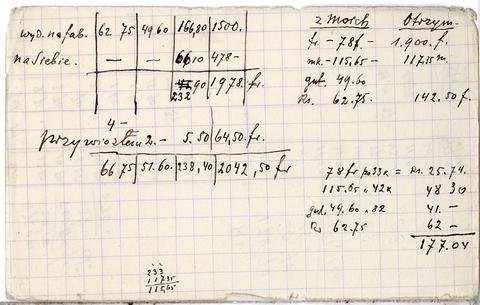 wyd. na fab. 62 75 49 60 166,80 1500.
na siebie. — — 66 10 478 —
232 90 1978. fr.
4 —
przywiozłem 2. — 5.50 64,50 fr.
66 75 51.60. 238,40 2042,50 fr
z moich Otrzym.
fr. — 78 f. — 1.900. f.
mk. — 115,65 — 117.35 m.
gul. 49.60
Rs. 62.75. 142.50 f.
78 fr po 33 k = Rs. 25.74.
115.65 " 42 k 48 30
gul. 49.60 " 82 41. —
Rs 62.75 62 —
177.04
233
117 35
115,65